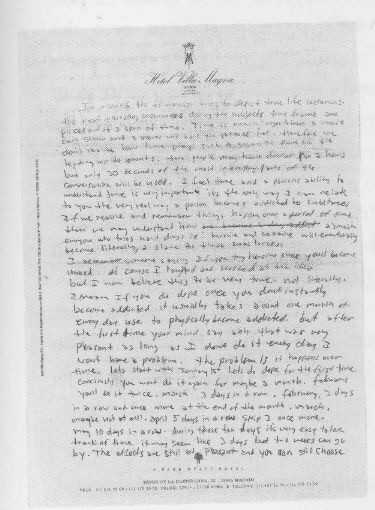 Hotel Villa Magna
MADRID
In movies the filmmaker tries to depict time like instances.
the most exciting occurances during the subjects time frame are
pieced of a span of time. Time is much longer than a movie
can show and a movie will have to portray that. therefore we
dont realize how time plays such a significant part in
leading up to events. two people may have dinner for 2 hours
but only 30 seconds of the most interesting parts of the
conversation will be used. I feel time and a persons ability to
understand time is very important its the only way I can relate
to you the very real way a person becomes addicted to substances
if we realize and remember things happen over a period of time
then we may understand how almost
everyone who tries hard drugs ie: heroine and cocaine will eventually
become literally a slave to these substances.
I remember someone saying if you try heroine once you'll become
hooked. Of course I laughed and scoffed at the idea
but I now believe this to be very true. not literally,
I mean If you do dope once you dont instantly
become addicted it usually takes about one month of
every day use to physically become addicted. but after
the first time your mind say ahh that was very
pleasant as long as I dont do it every day I
wont have a problem. the problem is it happens over
time. lets start with January 1st lets do dope for the first time.
conciously you wont do it again for maybe a month, february
youll do it twice. march 3 days in a row, february, 3 days
in a row and once more at the end of the month. march,
maybe not at all. april 5 days in a row skip 3 once more.
may 10 days in a row during those ten days its very easy to lose
track of time. it may seem like 3 days but two weeks can go
by. The effects are still as pleasant and you can still choose
A PARK HYATT HOTEL
PASEO DE LA CASTELLANA, 22 - 28046 MADRID